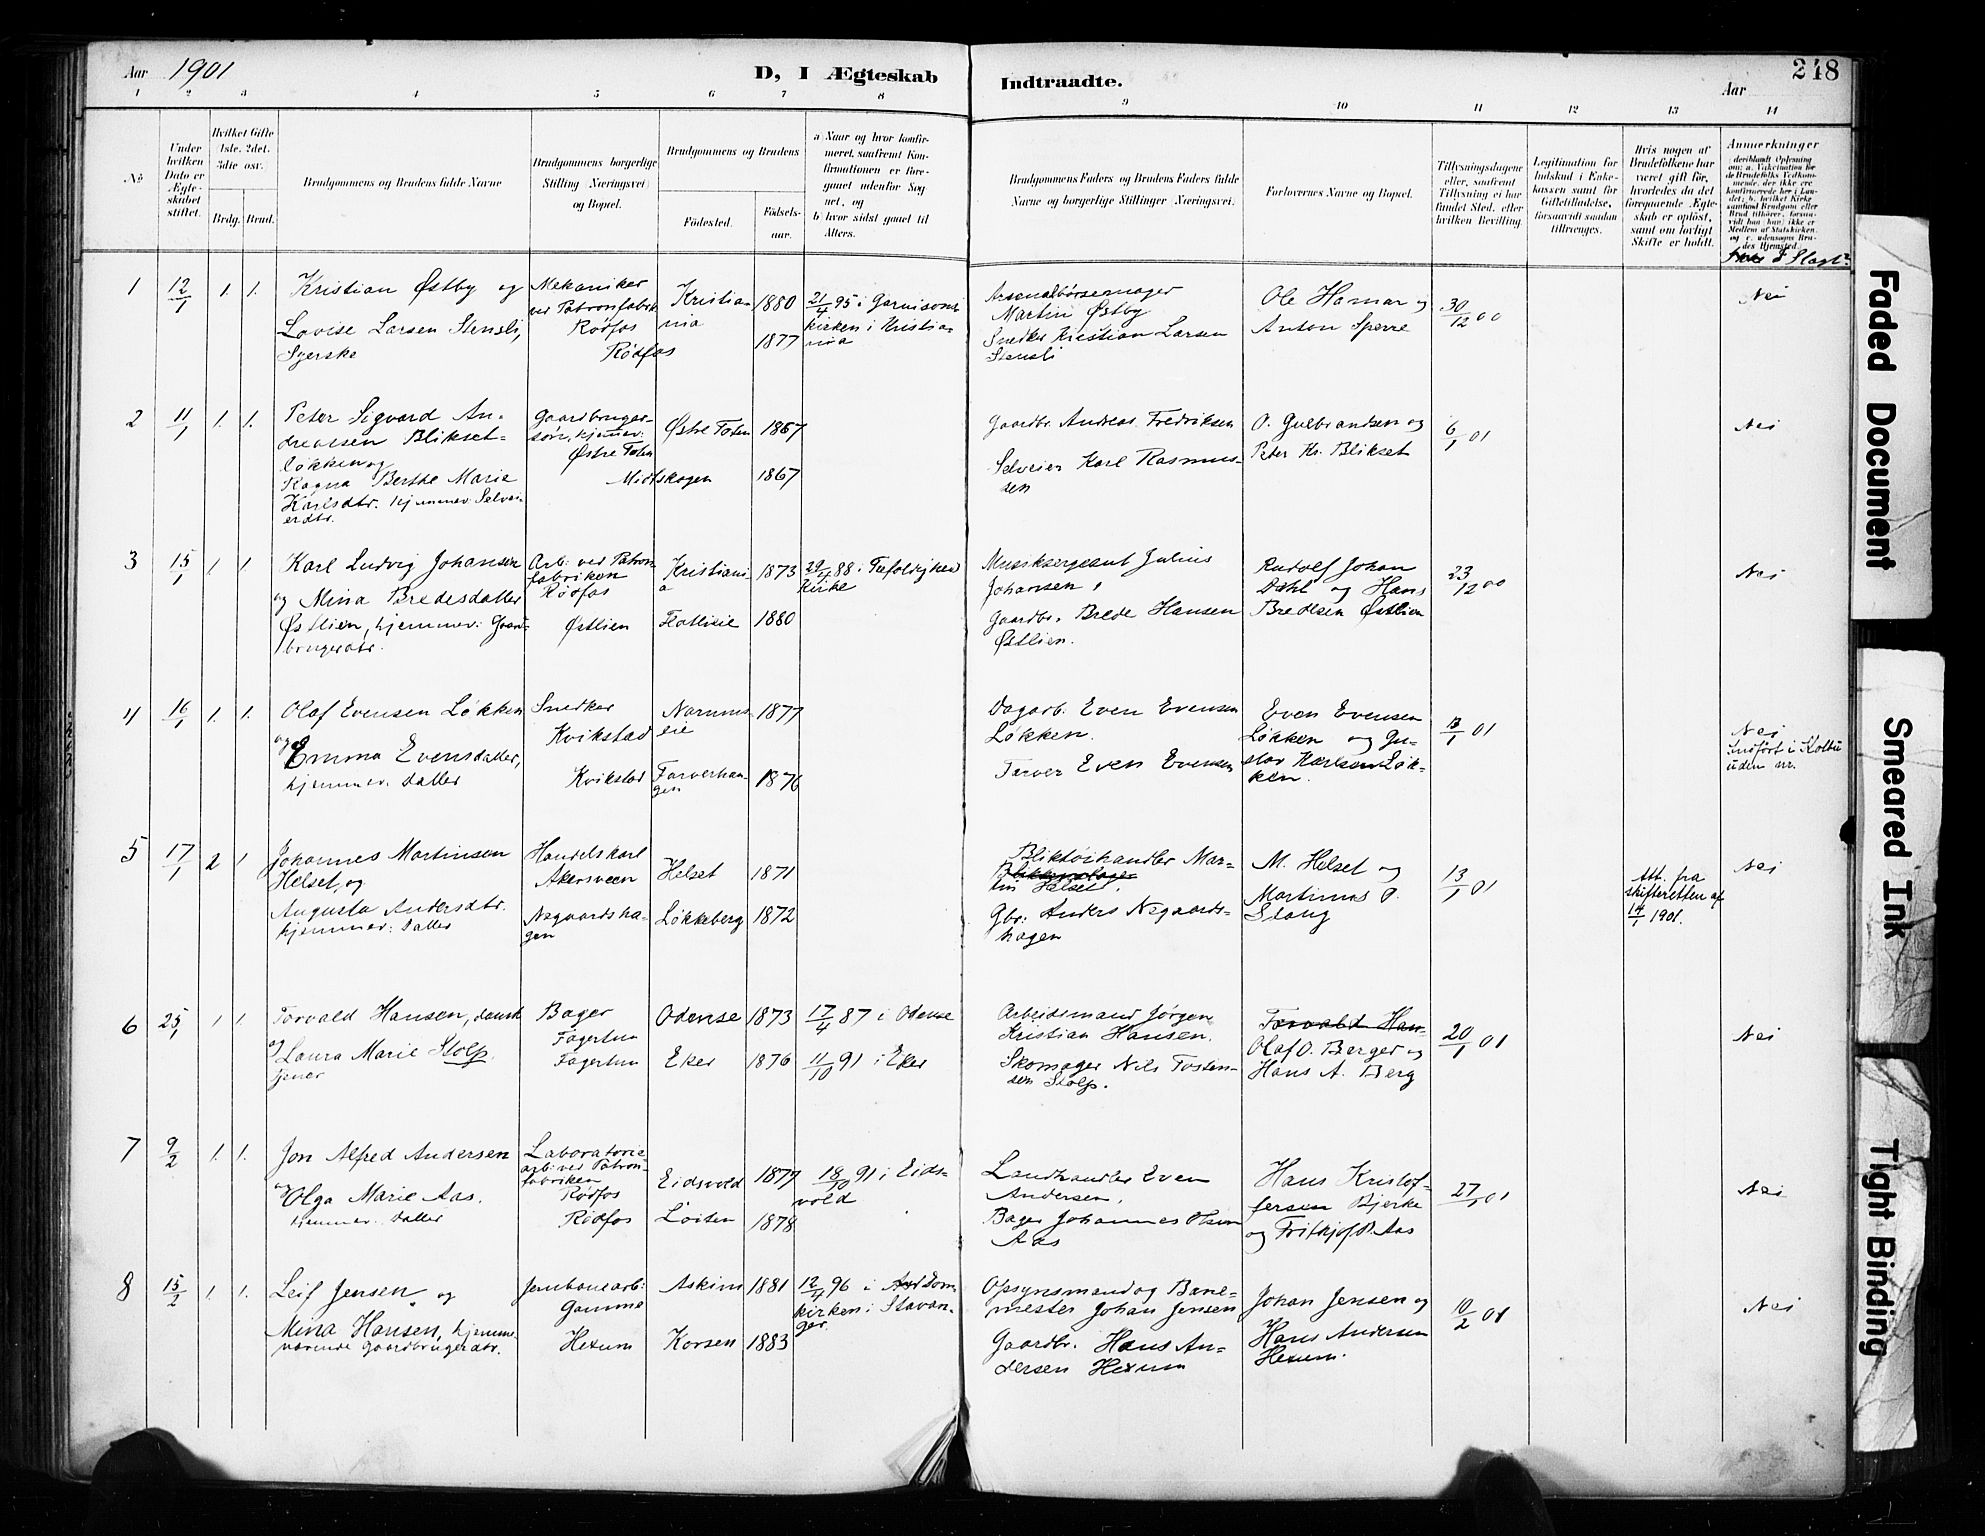 Aar 1901
D, I Ægteskab
Indtraadte.
Aar
248
1 2 3 4 5 6 7 8 9 10 11 12 13 14
No
Under hvilken Dato er Ægteskabet stiftet.
Hvilket Gifte 1ste. 2det. 3die osv.
Brdg. Brud.
Brudgommens og Brudens fulde Navne
Brudgommens borgerlige Stilling (Næringsvei) og Bopæl.
Brudgommens og Brudens
Fødested.
Fødselsaar.
a) Naar og hvor konfirmeret, saafremt Konfirmationen er foregaaet udenfor Sognet, og
b) hvor sidst gaaet til Alters.
Brudgommens Faders og Brudens Faders fulde Navne og borgerlige Stillinger (Næringsvei).
Forlovernes Navne og Bopæl.
Tillysningsdagene eller, saafremt Tillysning ei har fundet Sted, efter hvilken Bevilling.
Legitimation for Indskud i Enkekassen samt for Giftetilladelse, forsaavidt saadan tiltrænges.
Hvis nogen af Brudefolkene har været gift før, hvorledes da det foregaaende Ægteskab er opløst, samt om lovligt Skifte er holdt.
Anmerkninger
1 12/1 1. 1.
Kristian Østby og
Lovise Larsen Stensli,
Syerske
Mekaniker
ved Patronfabrik
Rødfos
Rødfos
Kristiania
1880
1877
21/4 95 i Garnisons
kirken i Kristiania
Arsenalbørsemager
Martin Østby
Snedker Kristian Larsen
Stensli
Ole Hamar og
Anton Sperre
30/12 00
Nei
2 11/1 1. 1.
Peter Sigvard An-
dreassen Blikset-
løkken og
Ragna Berthe Marie
Karlsdtr. hjemmev. Selvei-
erdtr.
Gaardbruger-
søn, hjemmev.
Østre Toten
Midtskogen
Østre Toten
1867
1867
Gaardbr. Andreas Fredriksen
Selveier Karl Rasmus-
sen
O. Gulbrandsen og
Peter Kr. Blikset
6/1 01
Nei
3 15/1 1. 1.
Karl Ludvig Johansen
og Mina Bredesdatter
Østlien, hjemmev: Gaard-
brugerdtr.
Arb: ved Patron
fabriken
Rødfos
Østlien
Kristiania
1873
1880
kirke
Musiksergeant Julius
Johansen,
Gaardbr. Brede Hansen
Østlien.
Rudolf Johan
Dahl og Hans
Bredesen Østlien
23/12 00
Nei
4 16/1 1. 1.
Olaf Evensen Løkken
og
Emma Evensdatter,
hjemmev. datter
Snedker
Kvikstad
Kvikstad
Farverha-
gen
1877
1876
Dagarb. Even Evensen
Løkken.
Farver Even Evensen
Even Evensen
Løkken og Gu-
stav Karlsen Løk-
ken.
01
Nei
indført i Kolbu
uden nr.
5 17/1 2 1
Johannes Martinsen
Helset, og
Augusta Andersdtr.
hjemmev: datter
Handelskarl
Akersveen
Nøgaardsha-
gen
Helset
Løkkeberg
1871
1872
Bliktøihandler Mar-
tin Helset.
Gbr: Anders Nøgaards-
hagen
M. Helset og
Martinus P.
Stang
13/1 01
Att. fra
skifteretten af
14/1 1901.
Nei
6 25/1 1. 1.
Torvald Hansen, dansk
og Laura Marie Stolp.
tjener
Bager
Fagertun
Fagertun
Odense
Eker
1873
1876
17/4 87 i Odense
11/10 91 i Eker
Arbeidsmand Jørgen
Kristian Hansen.
Skomager Nils Tosten-
sen Stolp.
Torvald Han-
Olaf O. Berger og
Hans A. Berg
20/1 01
Nei
7 9/2 1. 1.
Jon Alfred Andersen
og Olga Marie Aas.
hjemmev. datter
Laboratorie
arb: ved Patron-
fabriken
Rødfos
Rødfos
Eidsvold
Løiten
1877
1878
18/10 91 i Eids-
vold
Landhandler Even
Andersen.
Bager Johannes Olsen
Aas
Hans Kristof-
fersen Bjerke
og Fritjof B. Aas
27/1 01
Nei
8 15/2 1. 1.
Leif Jensen og
Mina Hansen, hjemme-
værende Gaardbrugerdtr.
Jernbanearb:
Gamme
Hexum
Askim
Korsen
1881
1883
12/4 96 i Dom
kirken i Stavan-
ger
Opsynsmand og Bane-
mester Johan Jensen
Gaardbr. Hans An-
dersen Hexum
Johan Jensen og
Hans Andersen
Hexum.
10/2 01
Nei
Faded Document
Smeared Ink
Tight Binding